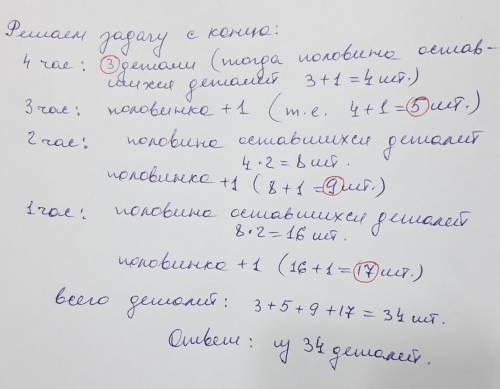 Решаем задачу с конца:
4 час: 3 детали (тогда половина остав-
шихся деталей 3+1=4 шт.)
3 час: половинка +1 (т.е. 4+1=5 шт.)
2 час: половина оставшихся деталей
4·2=8 шт.
половинка +1 (8+1=9 шт.)
1 час: половина оставшихся деталей
8·2=16 шт.
половинка +1 (16+1=17 шт.)
всего деталей: 3+5+9+17=34 шт.
Ответ: из 34 деталей.